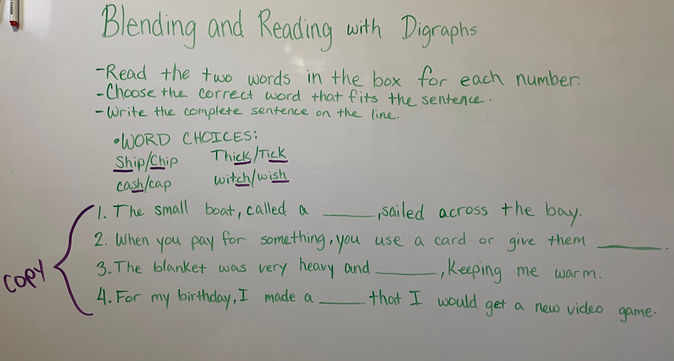 Blending and Reading with Digraphs
-Read the two words in the box for each number.
-Choose the correct word that fits the sentence.
-Write the complete sentence on the line.
•WORD CHOICES:
Ship/Chip Thick/Tick
cash/cap witch/wish
copy
1. The small boat, called a ____, sailed across the bay.
2. When you pay for something, you use a card or give them ____.
3. The blanket was very heavy and ____, keeping me warm.
4. For my birthday, I made a ____ that I would get a new video game.